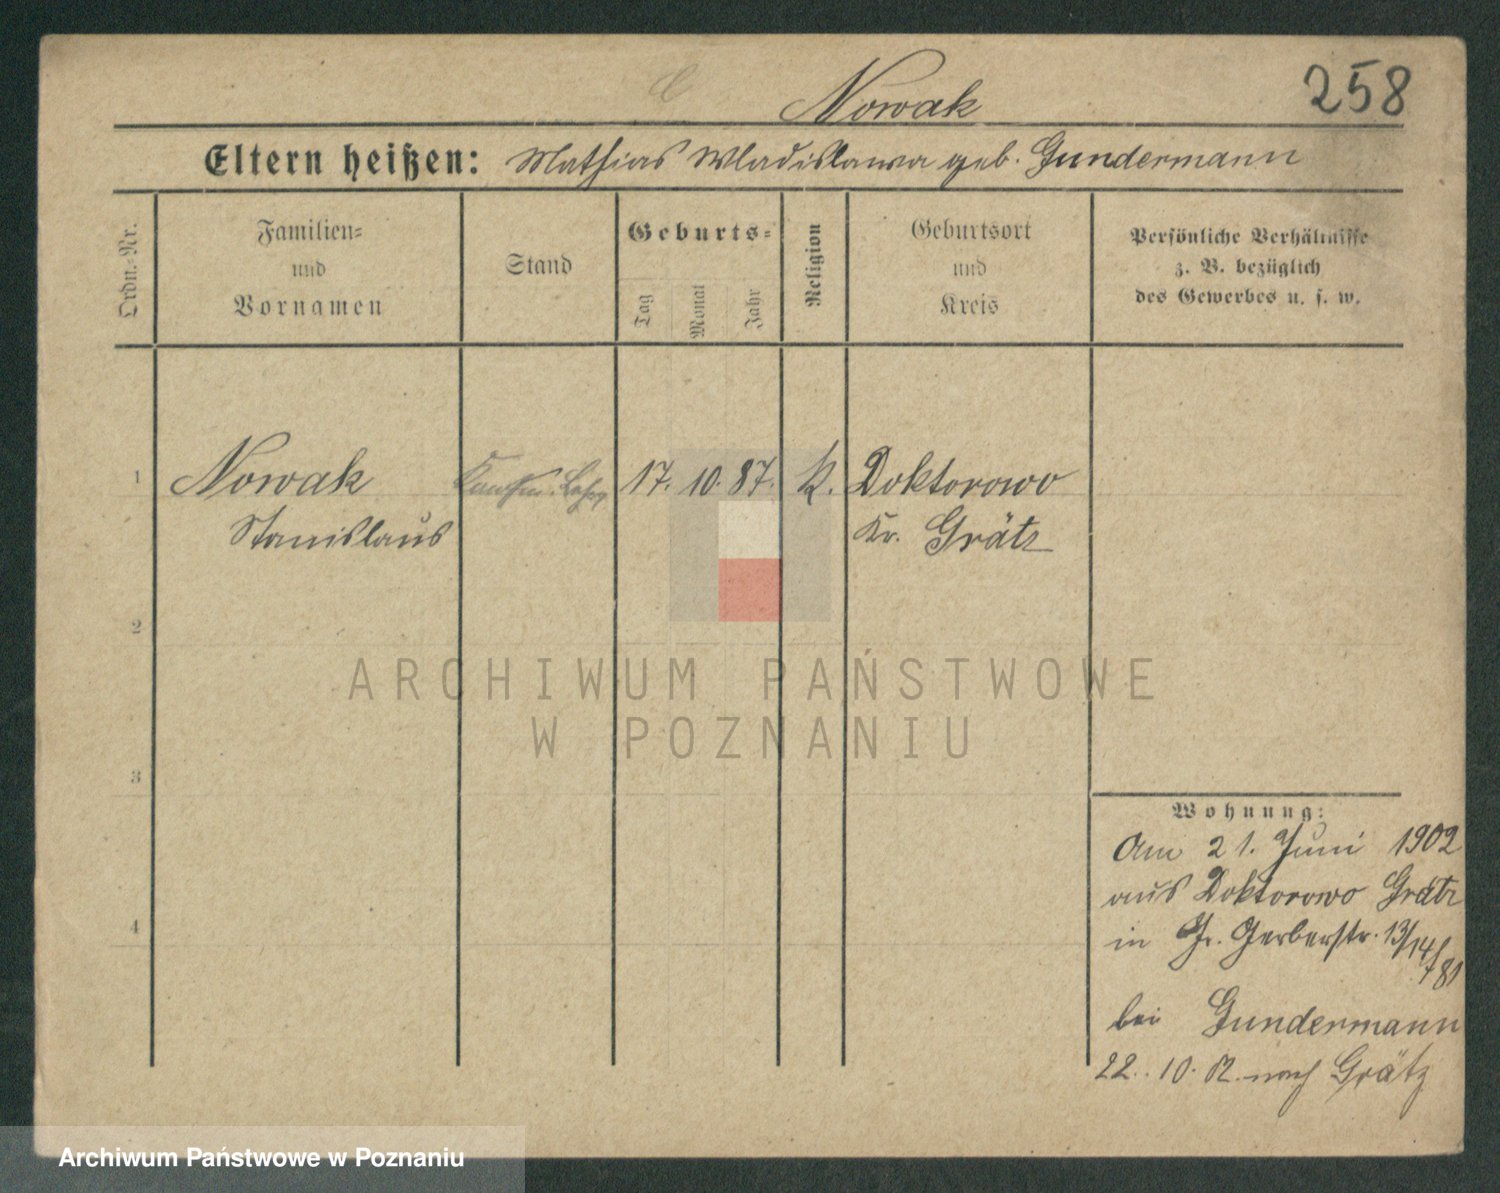 Nowak
258
Eltern heißen: Mathias Wladislawa geb. Gundermann
Ordn.-Nr.
Familien-
und
Vornamen
Stand
Geburts-
Tag
Monat
Jahr
Religion
Geburtsort
und
Kreis
Persönliche Verhältnisse
z. B. bezüglich
des Gewerbes u. s. w.
1
Nowak
Stanislaus
Kaufm. Lehrl
17. 10. 87.
K.
Doktorowo
Kr. Grätz
2
3
4
Wohnung:
Am 21. Juni 1902
aus Doktorowo Grätz
in Gr. Gerberstr. 13/14
bei Gundermann
22. 10. 02. nach Grätz
ARCHIWUM PAŃSTWOWE
W POZNANIU
Archiwum Państwowe w Poznaniu